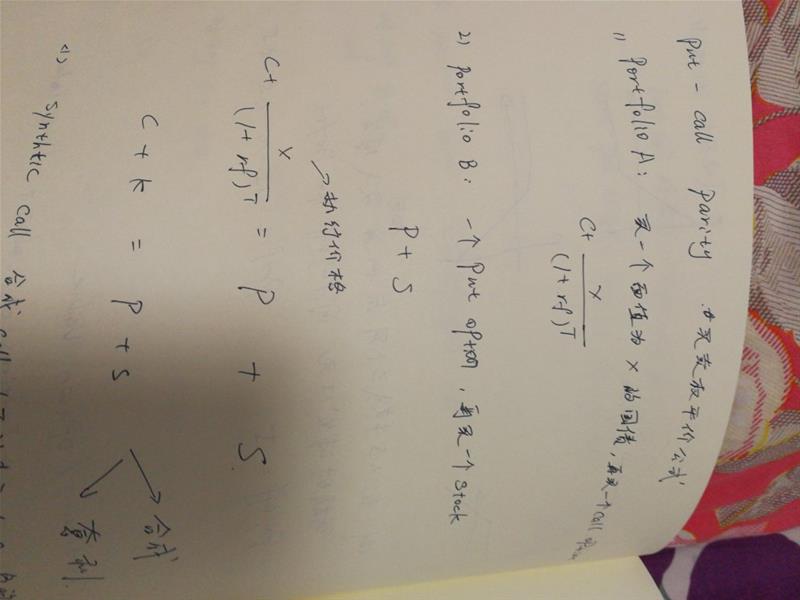 put - call parity 买卖权平价公式
1) portfolio A: 买一个面值为 X 的国债, 再买一个 call
C+ X/(1+rf)^T
2) portfolio B: 一个 put option, 再买一个 stock
P + S
→ 执行价格
C+ X/(1+rf)^T = P + S.
C + K = P + S
合成
套利
<1> synthetic call 合成 call